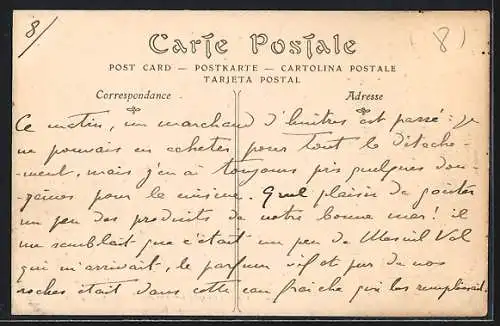 8/
(8)
Carte Postale
POST CARD — POSTKARTE — CARTOLINA POSTALE
TARJETA POSTAL
Correspondance
Adresse
Ce matin, un marchand d'huîtres est passé : je
ne pouvais en acheter pour tout le détache-
ment, mais j'en ai toujours pris quelques dou-
zaines pour la cuisine. Quel plaisir de goûter
un peu des produits de notre bonne mer ! il
me semblait que c'était un peu de Mesnil Val
qui m'arrivait, le parfum vif et pur de nos
roches était dans cette eau fraîche qui les remplissait.